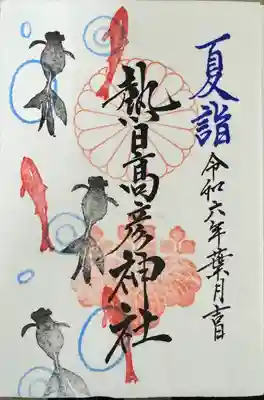 夏詣
令和六年葉月吉日
熱日高彦神社